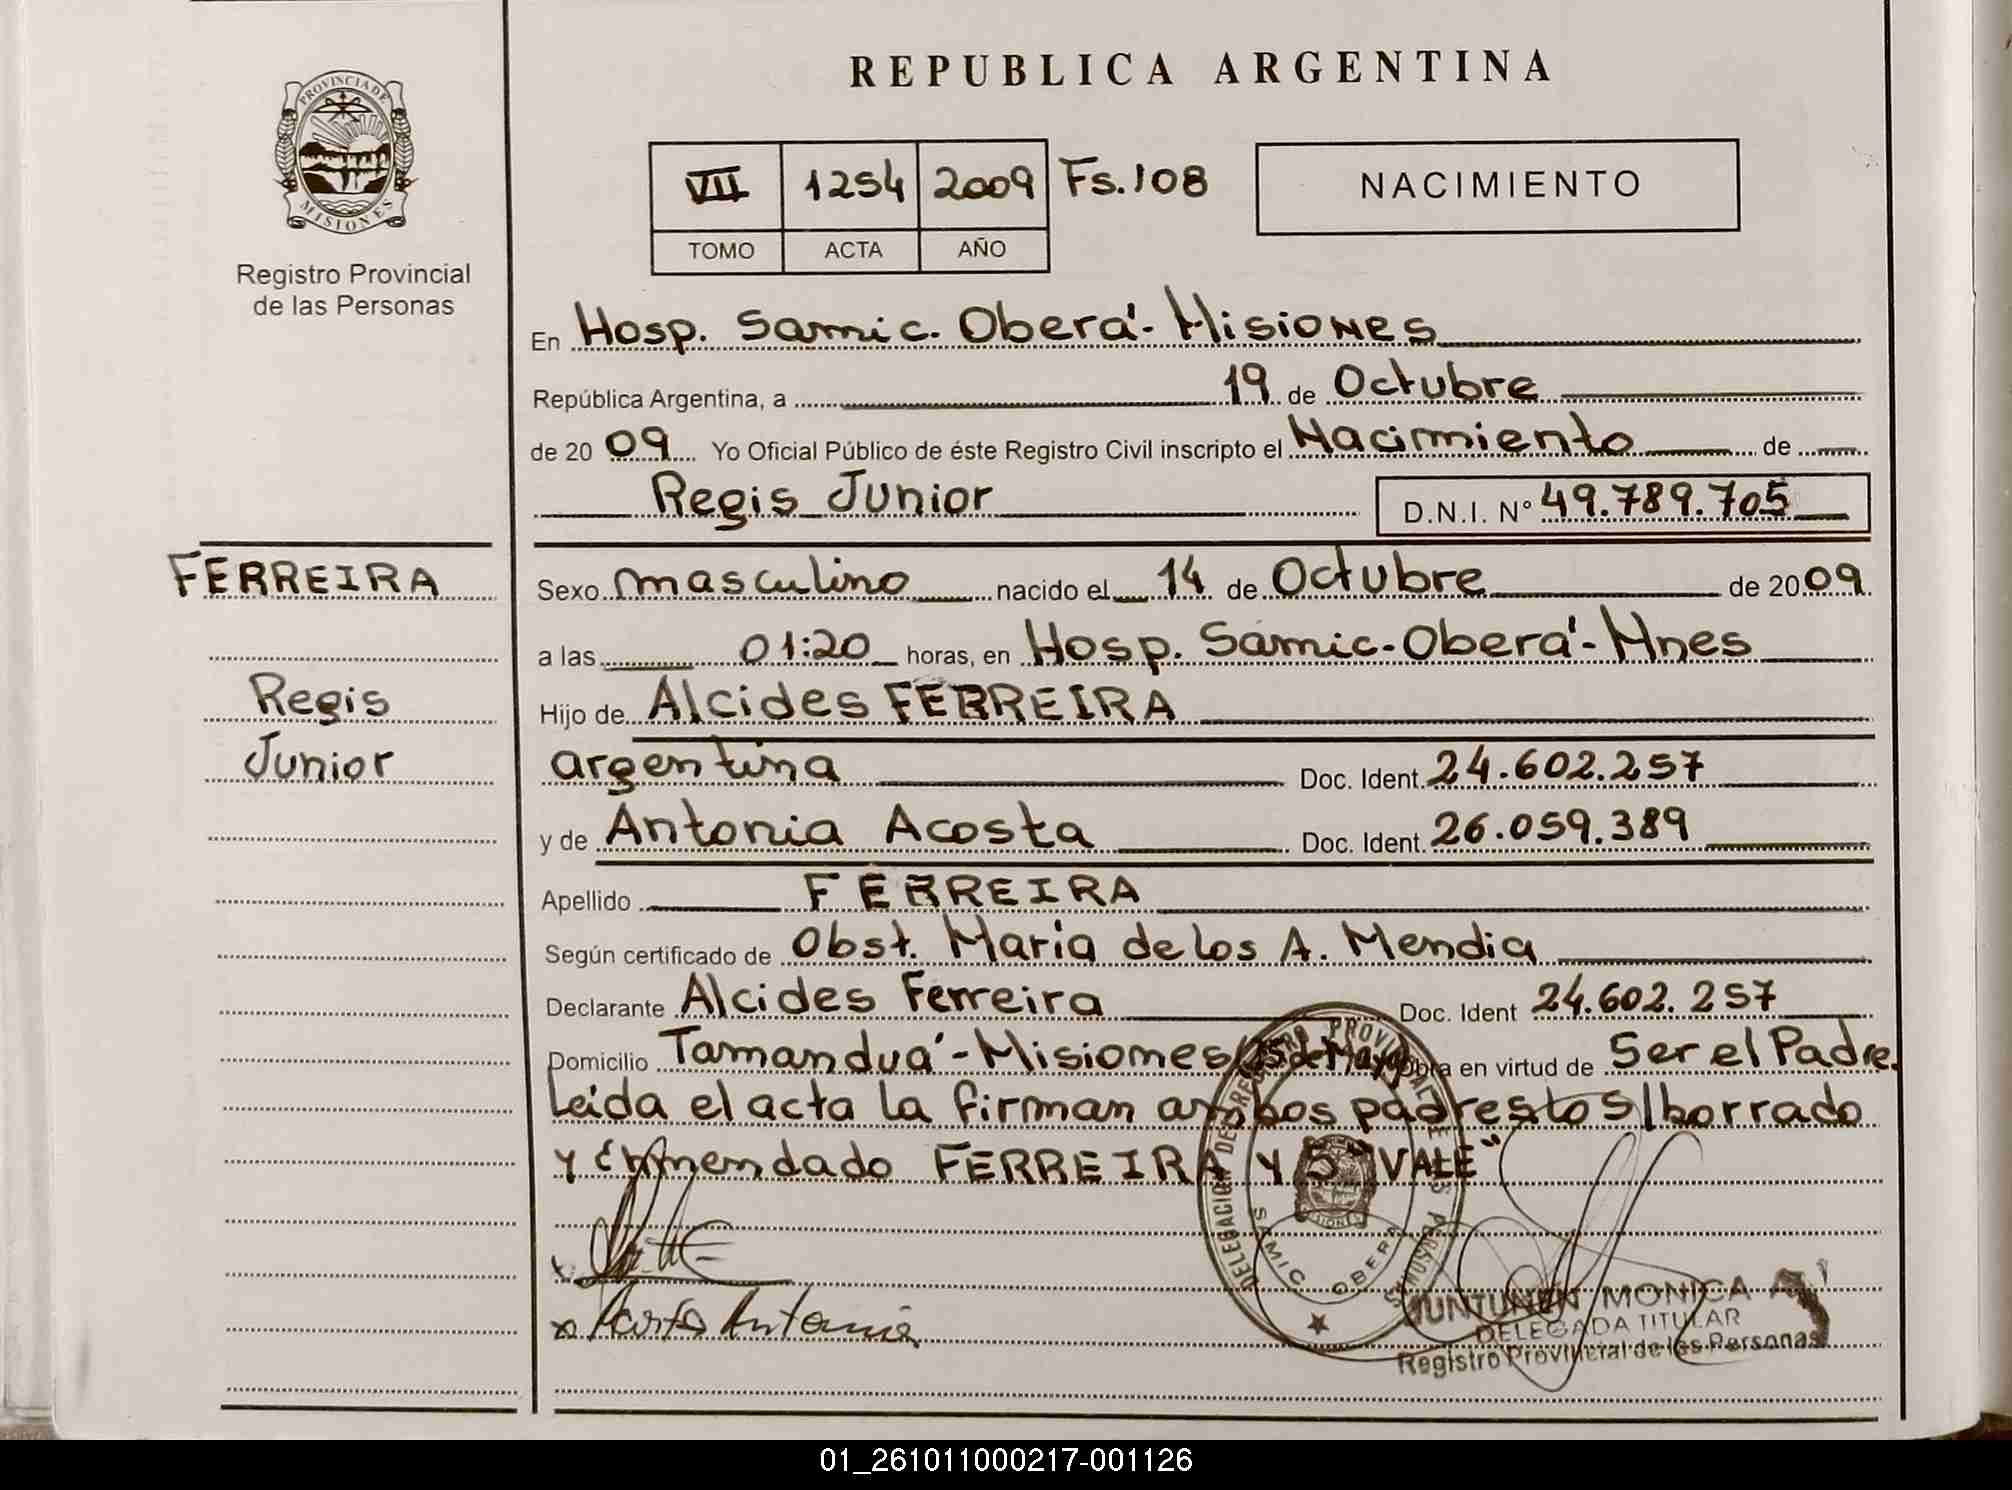 REPUBLICA ARGENTINA
PROVINCIA DE
MISIONES
Registro Provincial
de las Personas
VII 1254 2009 Fs.108
TOMO ACTA AÑO
NACIMIENTO
En Hosp. Samic. Oberá-Misiones
República Argentina, a 19 de Octubre
de 2009 Yo Oficial Público de éste Registro Civil inscripto el Nacimiento de
Regis Junior D.N.I. N° 49.789.705
FERREIRA
Regis
Junior
Sexo masculino nacido el 14 de Octubre de 2009
a las 01:20 horas, en Hosp. Samic-Oberá-Mnes
Hijo de Alcides FERREIRA
argentina Doc. Ident. 24.602.257
y de Antonia Acosta Doc. Ident. 26.059.389
Apellido FERREIRA
Según certificado de Obst. Maria de los A. Mendia
Declarante Alcides Ferreira Doc. Ident 24.602.257
Domicilio Tamanduá-Misiones (25 de Mayo) Obra en virtud de Ser el Padre.
Leída el acta la firman ambos padres lo s/borrado
y Enmendado FERREIRA y 5 "VALE"
x Acosta Antonia
DELEGACION DEL REGISTRO PROVINCIAL DE LAS PERSONAS
SAMIC OBERA
JUNTUNEN MONICA A.
DELEGADA TITULAR
Registro Provincial de las Personas
01_261011000217-001126